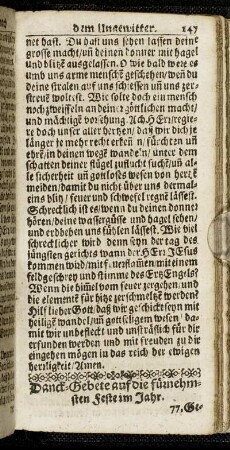 dem Ungewitter. 147
net hast. Du hast uns sehen lassen deine
grosse macht/uñ deinen donner mit hagel
und blitz ausgelassen. O wie bald were es
umb uns arme menschē geschehen/weñ du
deine stralen auf uns schiessen uñ uns zer-
streuē woltest. Wie solte doch ein mensch
noch zweiffeln an deineꝛ göttlichen macht
und mächtigē vorsehung. Ach HErr/regie-
re doch unser aller hertzen/ daß wir dich je
länger je mehr recht erkeñ n/fürchten uñ
ehrē/in deinen wegē wande'n/ unter dem
schatten deiner flügel zuflucht suchē/uñ al-
le sicherheit uñ gottloses wesen von hertzē
meiden/damit du nicht über uns dermal-
eins blitz/ feuer und schwefel regnē lässest.
Schrecklich ist es/weñ du deinen donner
hören/deine wassergüsse und hagel sehen/
und erdbeben uns fühlen lässest. Wie viel
schrecklicher wird denn seyn der tag des
jüngsten gerichts wann der HErr JEsus
kommen wird/mit feuerflamēn mit einem
feldgeschrey und stimme des ErtzEngels?
Wenn die himel vom feuer zergehen/ und
die elementē für hitze zerschmeltzē werden?
Hilf lieber Gott/daß wir geschickt seyn mit
heiligē wandel/uñ gottseligem wesen/ da-
mit wir unbefleckt und unsträflich für dir
erfunden werden und mit freuden zu dir
eingehen mögen in das reich der ewigen
herrligkeit/Amen.
Danck-Gebete auf die fürnehm-
sten Feste im Jahr.
77. Ge-